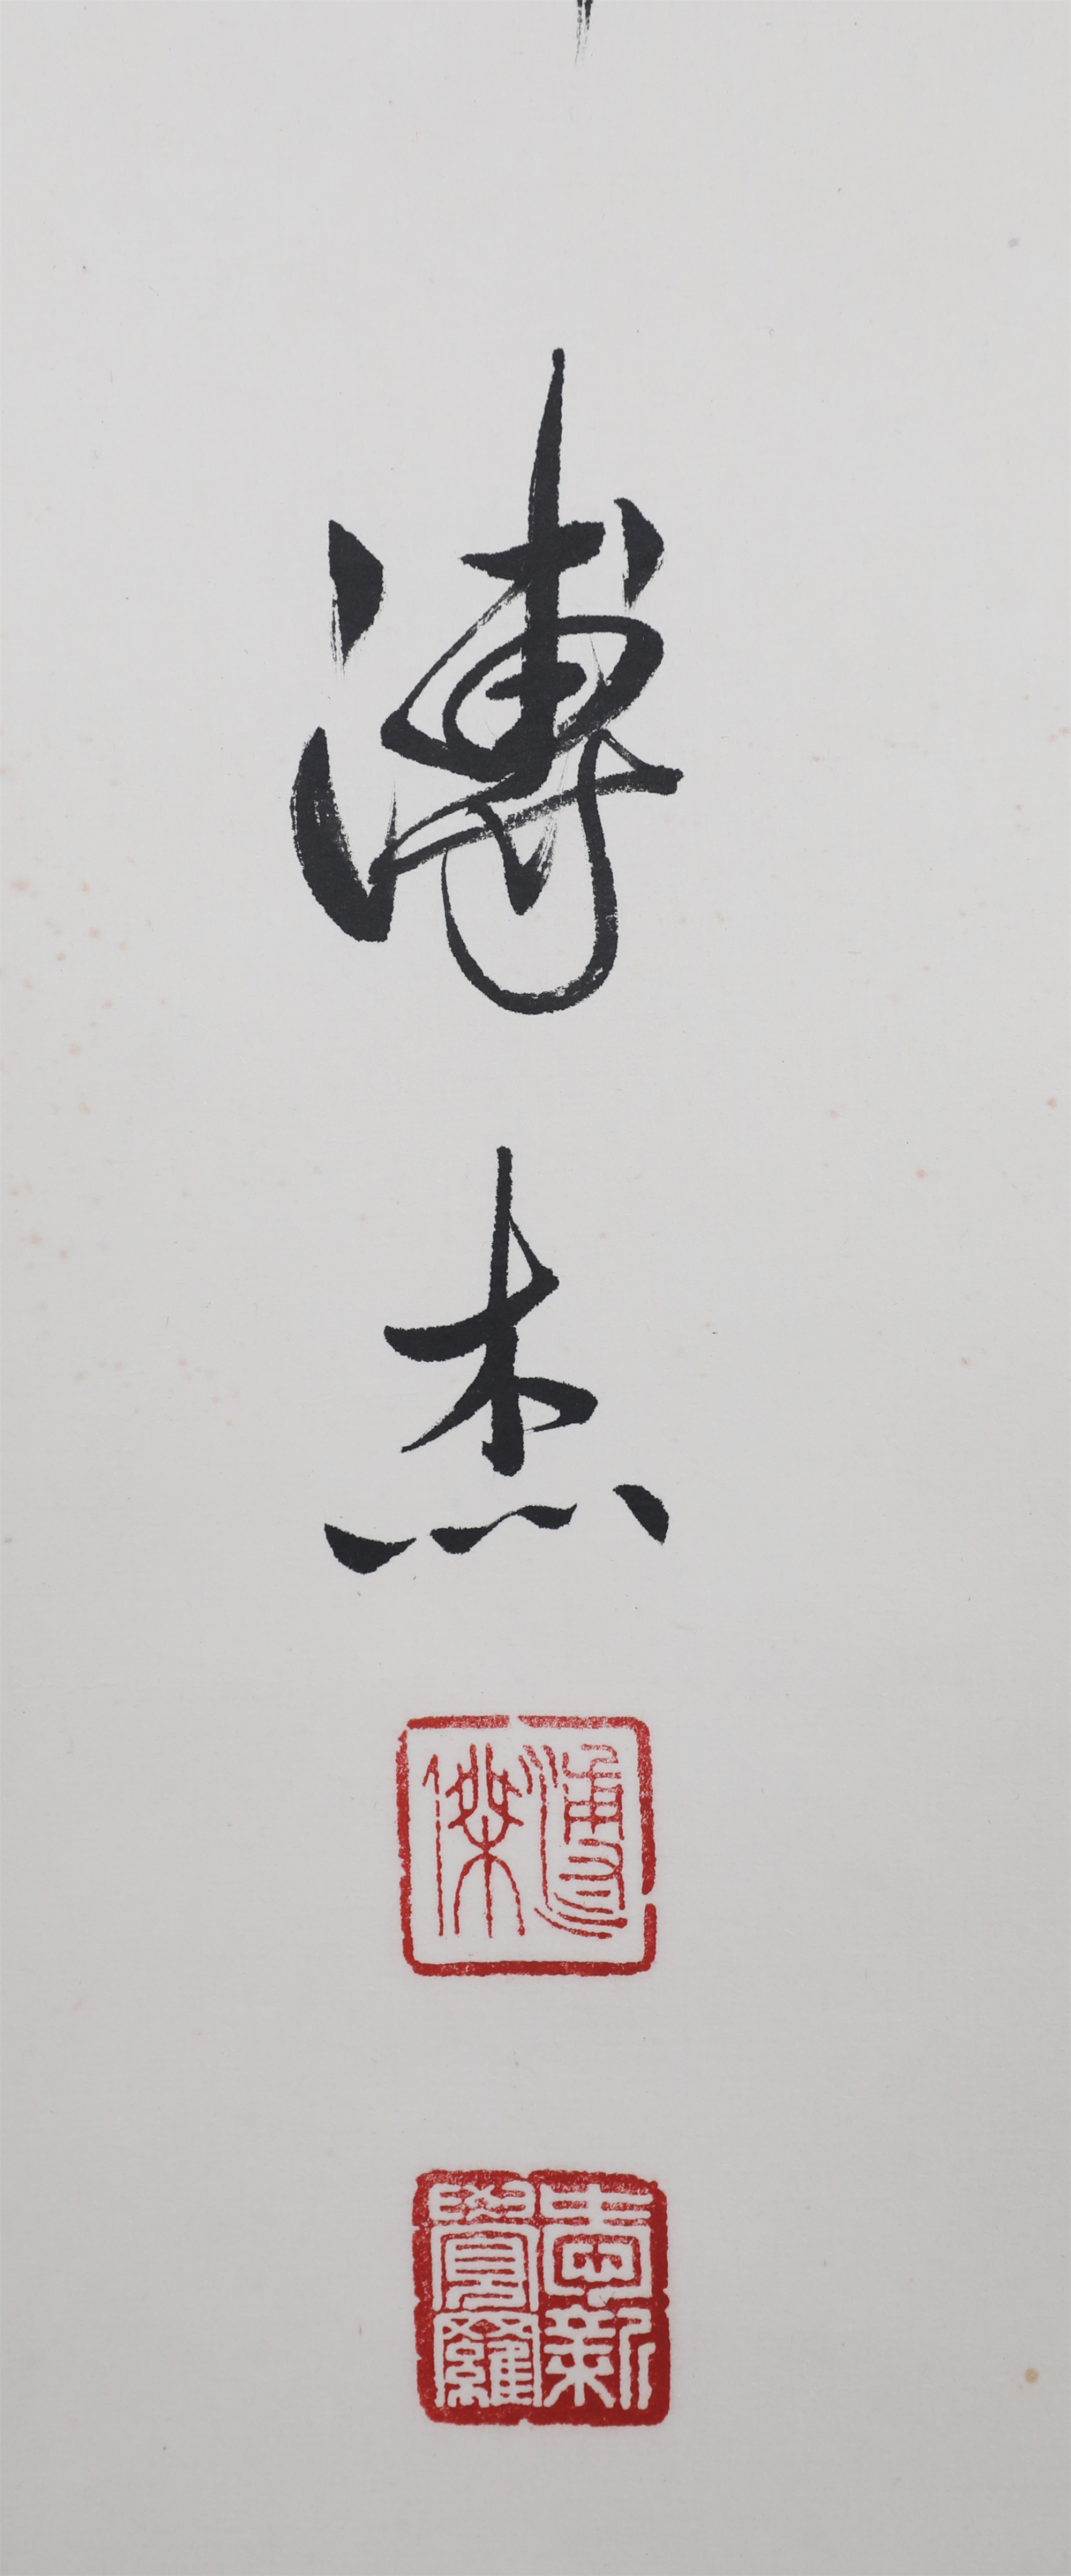 溥杰
溥傑
愛新
覺羅